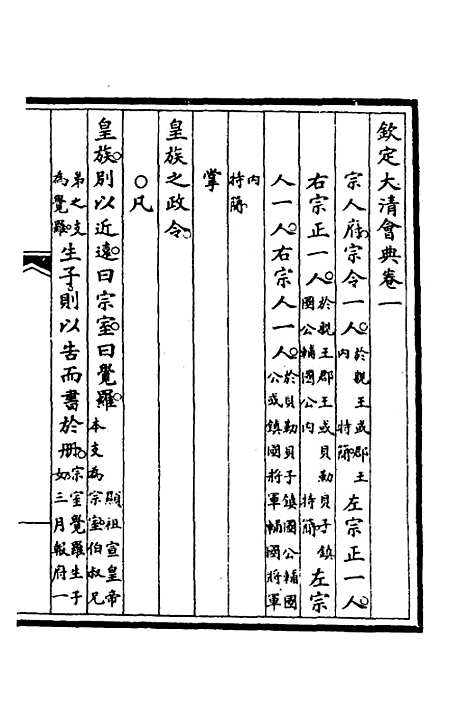 欽定大清會典卷一
宗人府宗令一人於親王或郡王內特簡左宗正一人
右宗正一人於親王郡王或貝勒貝子鎮國公輔國公內特簡左宗
人一人右宗人一人於貝勒貝子鎮國公輔國公或鎮國將軍輔國將軍
內特簡
掌
皇族之政令
○凡
皇族別以近遠曰宗室曰覺羅顯祖宣皇帝本支為宗室伯叔兄
弟之支為覺羅生子則以告而書於冊宗室覺羅生子如三月報府一